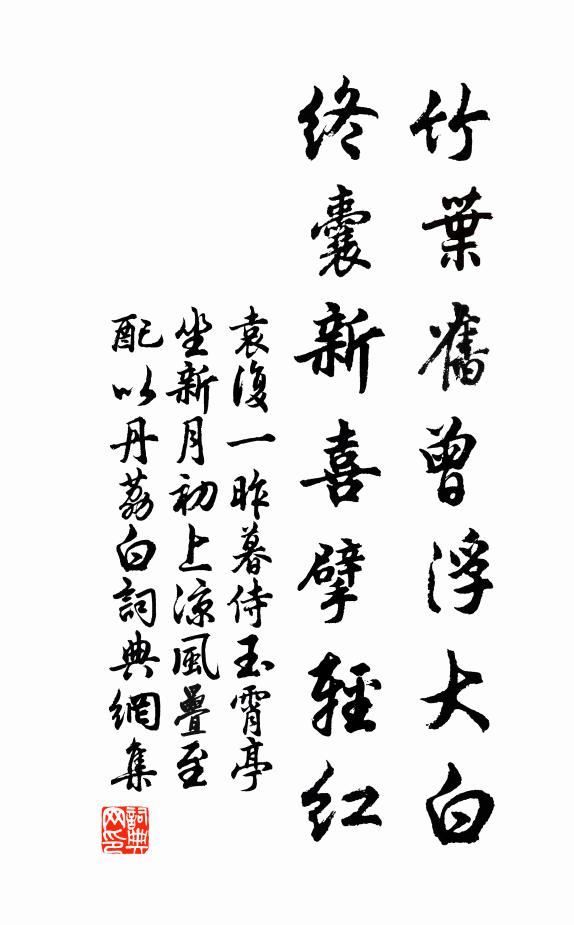 竹葉舊曾浮大白
終囊新喜擘輕紅
袁復一昨暮侍玉霄亭
坐新月初上涼風疊至
配以丹荔白詞典網集
詞典网印